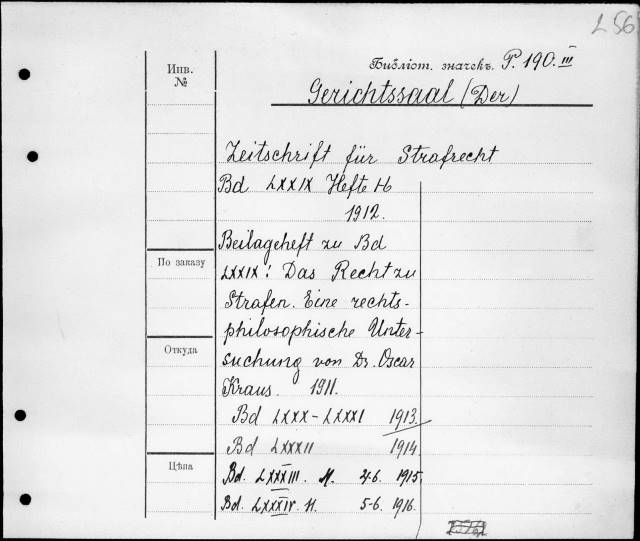 L 56
Инв. №
Библіот. значекъ. P. 190. III
Gerichtssaal (Der)
Zeitschrift für Strafrecht
Bd LXXIX Hefte 1-6
1912.
Beilageheft zu Bd
По заказу
LXXIX: Das Recht zu
Strafen. Eine rechts-
philosophische Unter-
Откуда
suchung von Dr. Oscar
Kraus. 1911.
Bd LXXX-LXXXI 1913.
Bd LXXXII 1914.
Цѣна
Bd. LXXXIII. H. 4-6. 1915.
Bd. LXXXIV. H. 5-6. 1916.